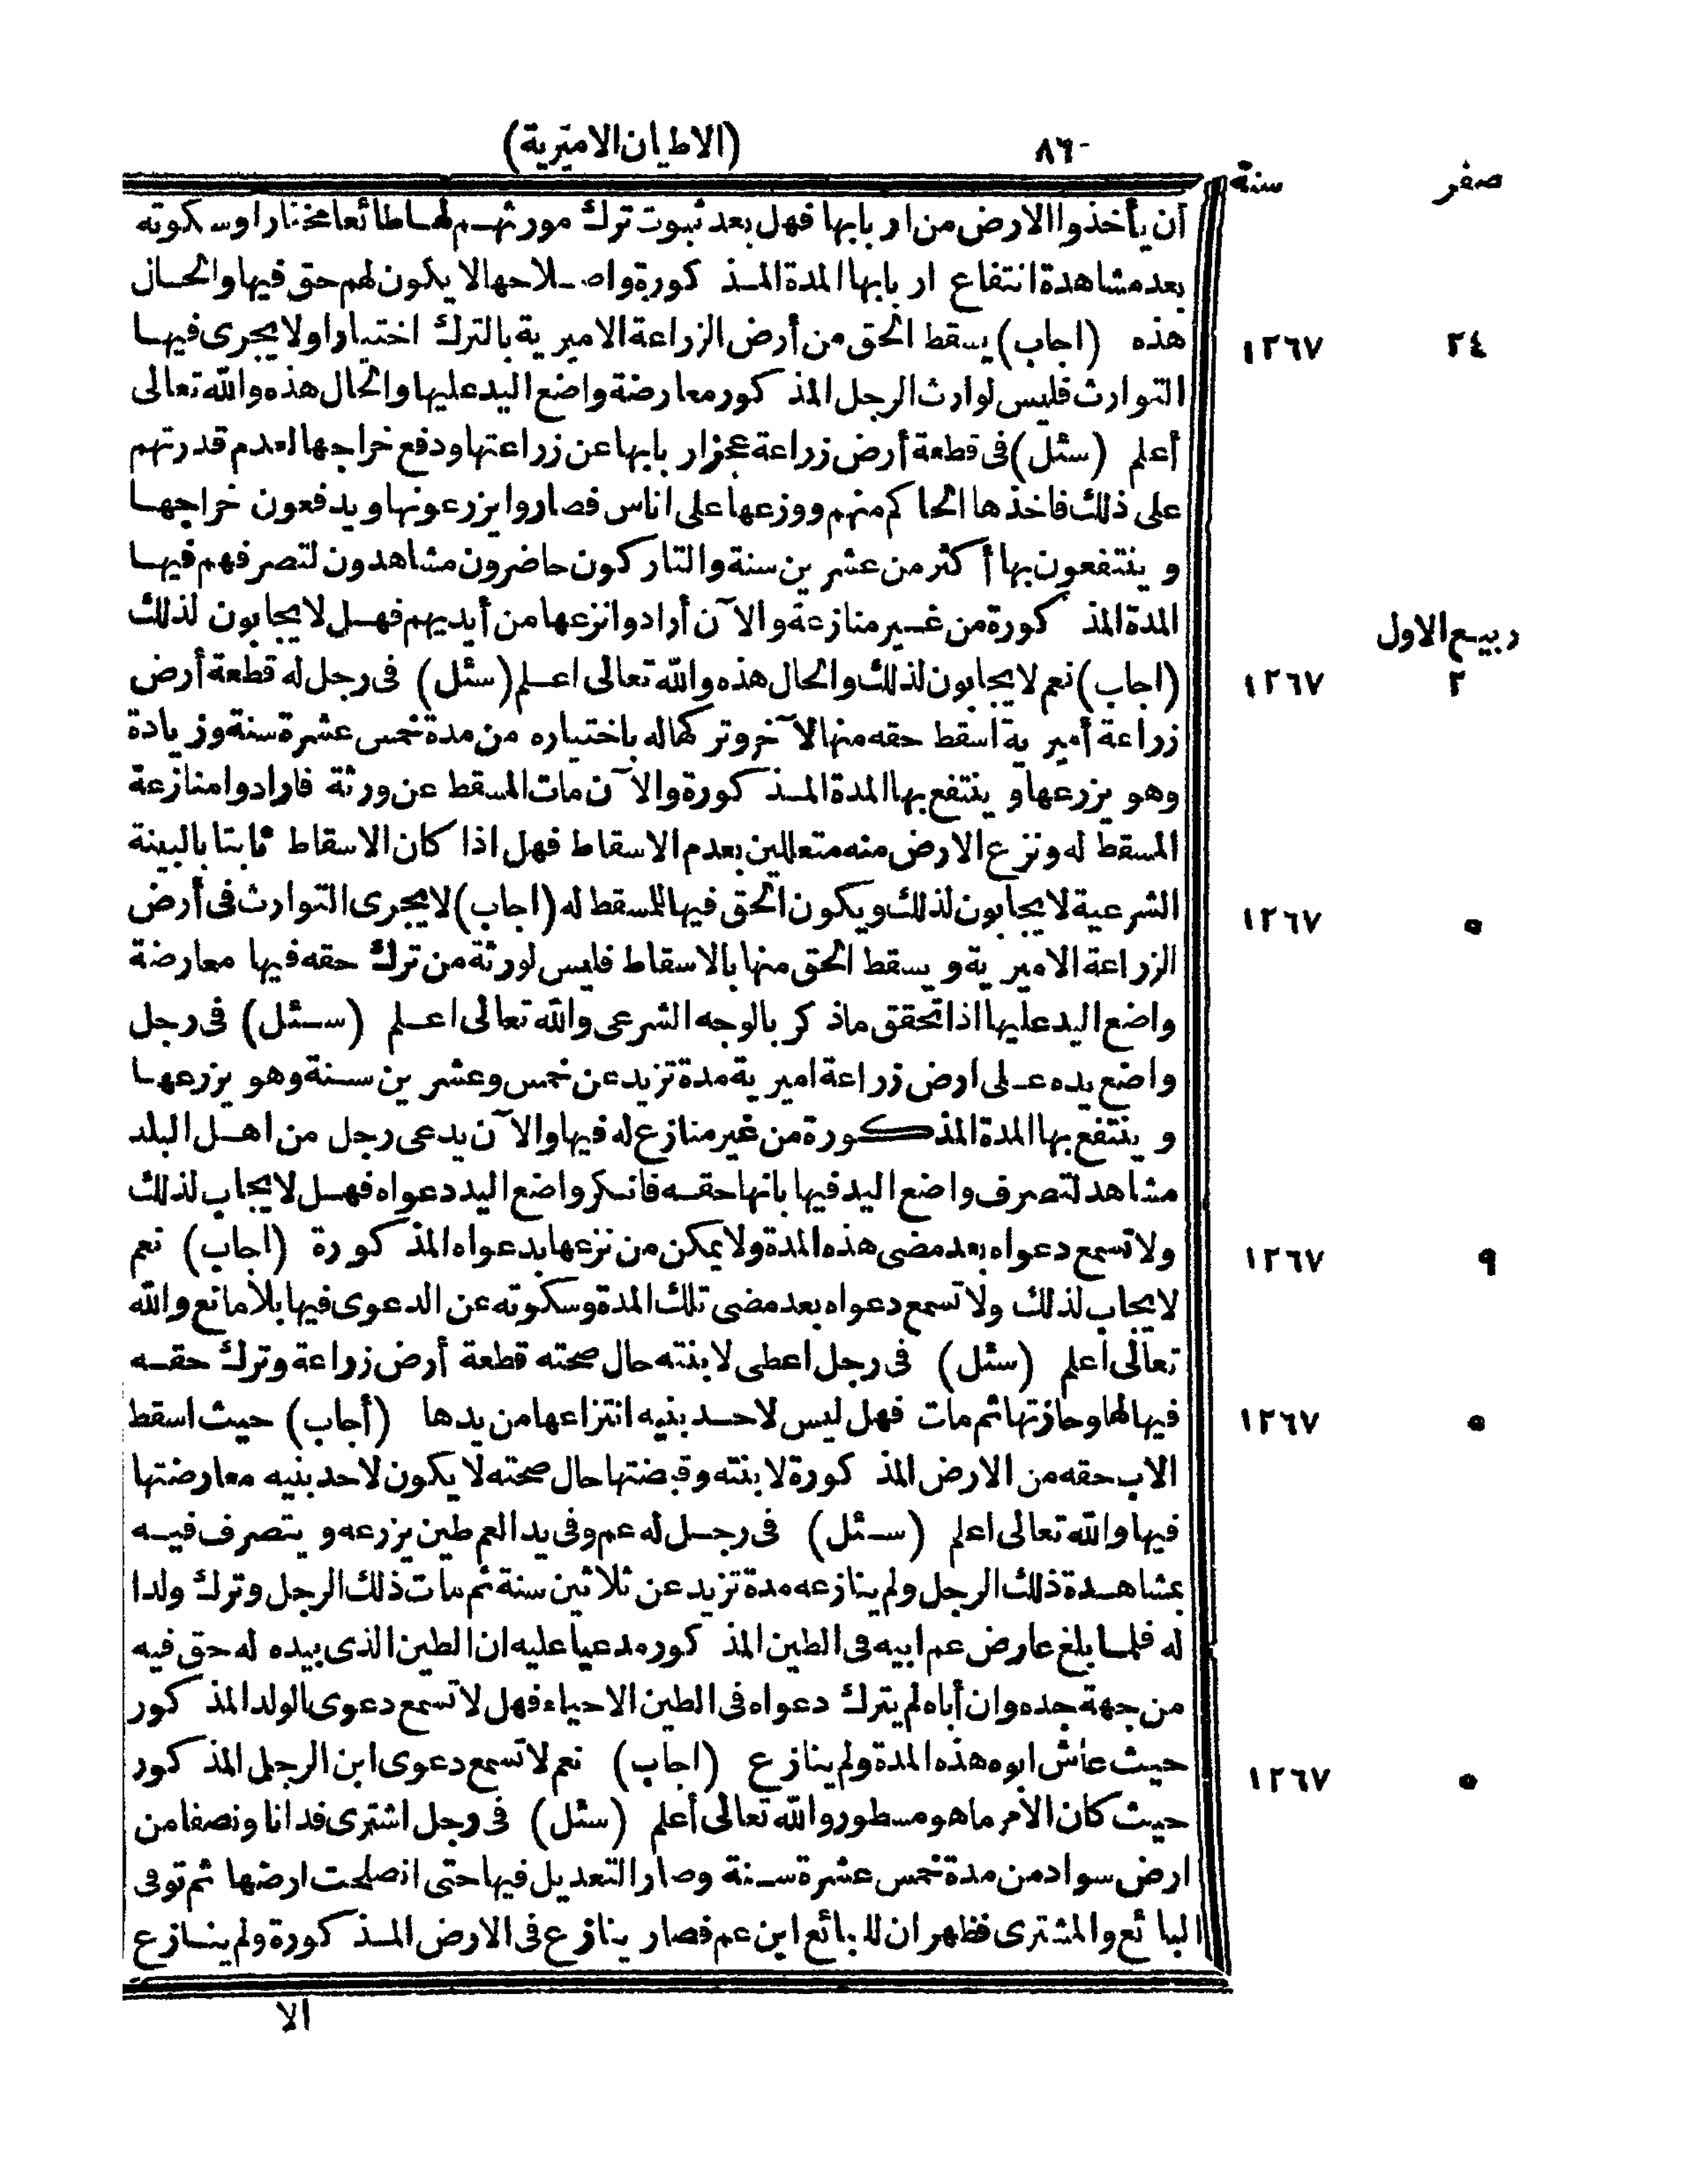 ٨٦ (الاطيان الاميرية)
صفر سنة
أن يأخذوا الارض من اربابها فهل بعد ثبوت ترك مورثهم لها طائعا مختارا وسكوته
بعد مشاهدة انتفاع اربابها المدة المذكورة واصلاحها لا يكون لهم حق فيها والحال
هذه (اجاب) يسقط الحق من أرض الزراعة الاميرية بالترك اختيارا ولا يجرى فيها ١٢٦٧ ٢٤
التوارث فليس لوارث الرجل المذكور معارضة واضع اليد عليها والحال هذه والله تعالى
أعلم (سئل) فى قطعة أرض زراعة عجز اربابها عن زراعتها ودفع خراجها لعدم قدرتهم
على ذلك فاخذها الحاكم منهم ووزعها على اناس فصاروا يزرعونها ويدفعون خراجها
وينتفعون بها أكثر من عشرين سنة والتاركون حاضرون مشاهدون لتصرفهم فيها
المدة المذكورة من غير منازعة والآن أرادوا نزعها من أيديهم فهل لا يجابون لذلك ربيع الاول
(اجاب) نعم لا يجابون لذلك والحال هذه والله تعالى اعلم (سئل) فى رجل له قطعة أرض ١٢٦٧ ٢
زراعة أميرية اسقط حقه منها لآخر وتركها له باختياره من مدة خمس عشرة سنة وزيادة
وهو يزرعها وينتفع بها المدة المذكورة والآن مات المسقط عن ورثة فارادوا منازعة
المسقط له ونزع الارض منه متعللين بعدم الاسقاط فهل اذا كان الاسقاط ثابتا بالبينة
الشرعية لا يجابون لذلك ويكون الحق فيها للمسقط له (اجاب) لا يجرى التوارث فى أرض ١٢٦٧ ٥
الزراعة الاميرية ويسقط الحق منها بالاسقاط فليس لورثة من ترك حقه فيها معارضة
واضع اليد عليها اذا تحقق ماذكر بالوجه الشرعى والله تعالى اعلم (سئل) فى رجل
واضع يده على ارض زراعة اميرية مدة تزيد عن خمس وعشرين سنة وهو يزرعها
وينتفع بها المدة المذكورة من غير منازع له فيها والآن يدعى رجل من اهل البلد
مشاهد لتصرف واضع اليد فيها بانها حقه فانكر واضع اليد دعواه فهل لا يجاب لذلك
ولا تسمع دعواه بعد مضى هذه المدة ولا يمكن من نزعها بدعواه المذكورة (اجاب) نعم ١٢٦٧ ٩
لا يجاب لذلك ولا تسمع دعواه بعد مضى تلك المدة وسكوته عن الدعوى فيها بلا مانع والله
تعالى اعلم (سئل) فى رجل اعطى لابنته حال صحته قطعة أرض زراعة وترك حقه
فيها لها وحازتها ثم مات فهل ليس لاحد بنيه انتزاعها من يدها (أجاب) حيث اسقط ١٢٦٧ ٥
الاب حقه من الارض المذكورة لابنته وقبضتها حال صحته لا يكون لاحد بنيه معارضتها
فيها والله تعالى اعلم (سئل) فى رجل له عم وفى يد العم طين يزرعه ويتصرف فيه
بمشاهدة ذلك الرجل ولم ينازعه مدة تزيد عن ثلاثين سنة ثم مات ذلك الرجل وترك ولدا
له فلما بلغ عارض عم ابيه فى الطين المذكور مدعيا عليه ان الطين الذى بيده له حق فيه
من جهة جده وان أباه لم يترك دعواه فى الطين الاحياء فهل لا تسمع دعوى الولد المذكور
حيث عاش ابوه هذه المدة ولم ينازع (اجاب) نعم لا تسمع دعوى ابن الرجل المذكور ١٢٦٧ ٥
حيث كان الأمر ماهو مسطور والله تعالى أعلم (سئل) فى رجل اشترى فدانا ونصفا من
ارض سواد من مدة خمس عشرة سنة وصار التعديل فيها حتى انصلحت ارضها ثم توفى
البائع والمشترى فظهر ان للبائع ابن عم فصار ينازع فى الارض المذكورة ولم ينازع
الا